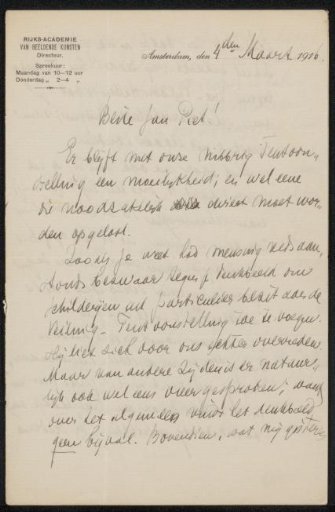 RIJKS-ACADEMIE
VAN BEELDENDE KUNSTEN
Directeur.
Spreekuur:
Maandag van 10–12 uur
Donderdag „ 2–4 „
Amsterdam, den 4den Maart 1916
Beste Jan Piet!
Er blijft met onze Nibbrig Tentoon-
stelling een moeilijkheid; en wel eene
die noodzakelijk direct moet wor-
den opgelost.
Zooals je weet had mensing reeds aan-
stonds bezwaar tegen 't denkbeeld om
schilderijen uit particulier bezit aan de
veiling-Tentoonstelling toe te voegen.
Hij liet zich door ons echter overreden.
Maar van andere zijden is er natuur-
lijk ook wel eens over gesproken; en
over het algemeen vindt het denkbeeld
geen bijval. Bovendien, wat mij gisteren